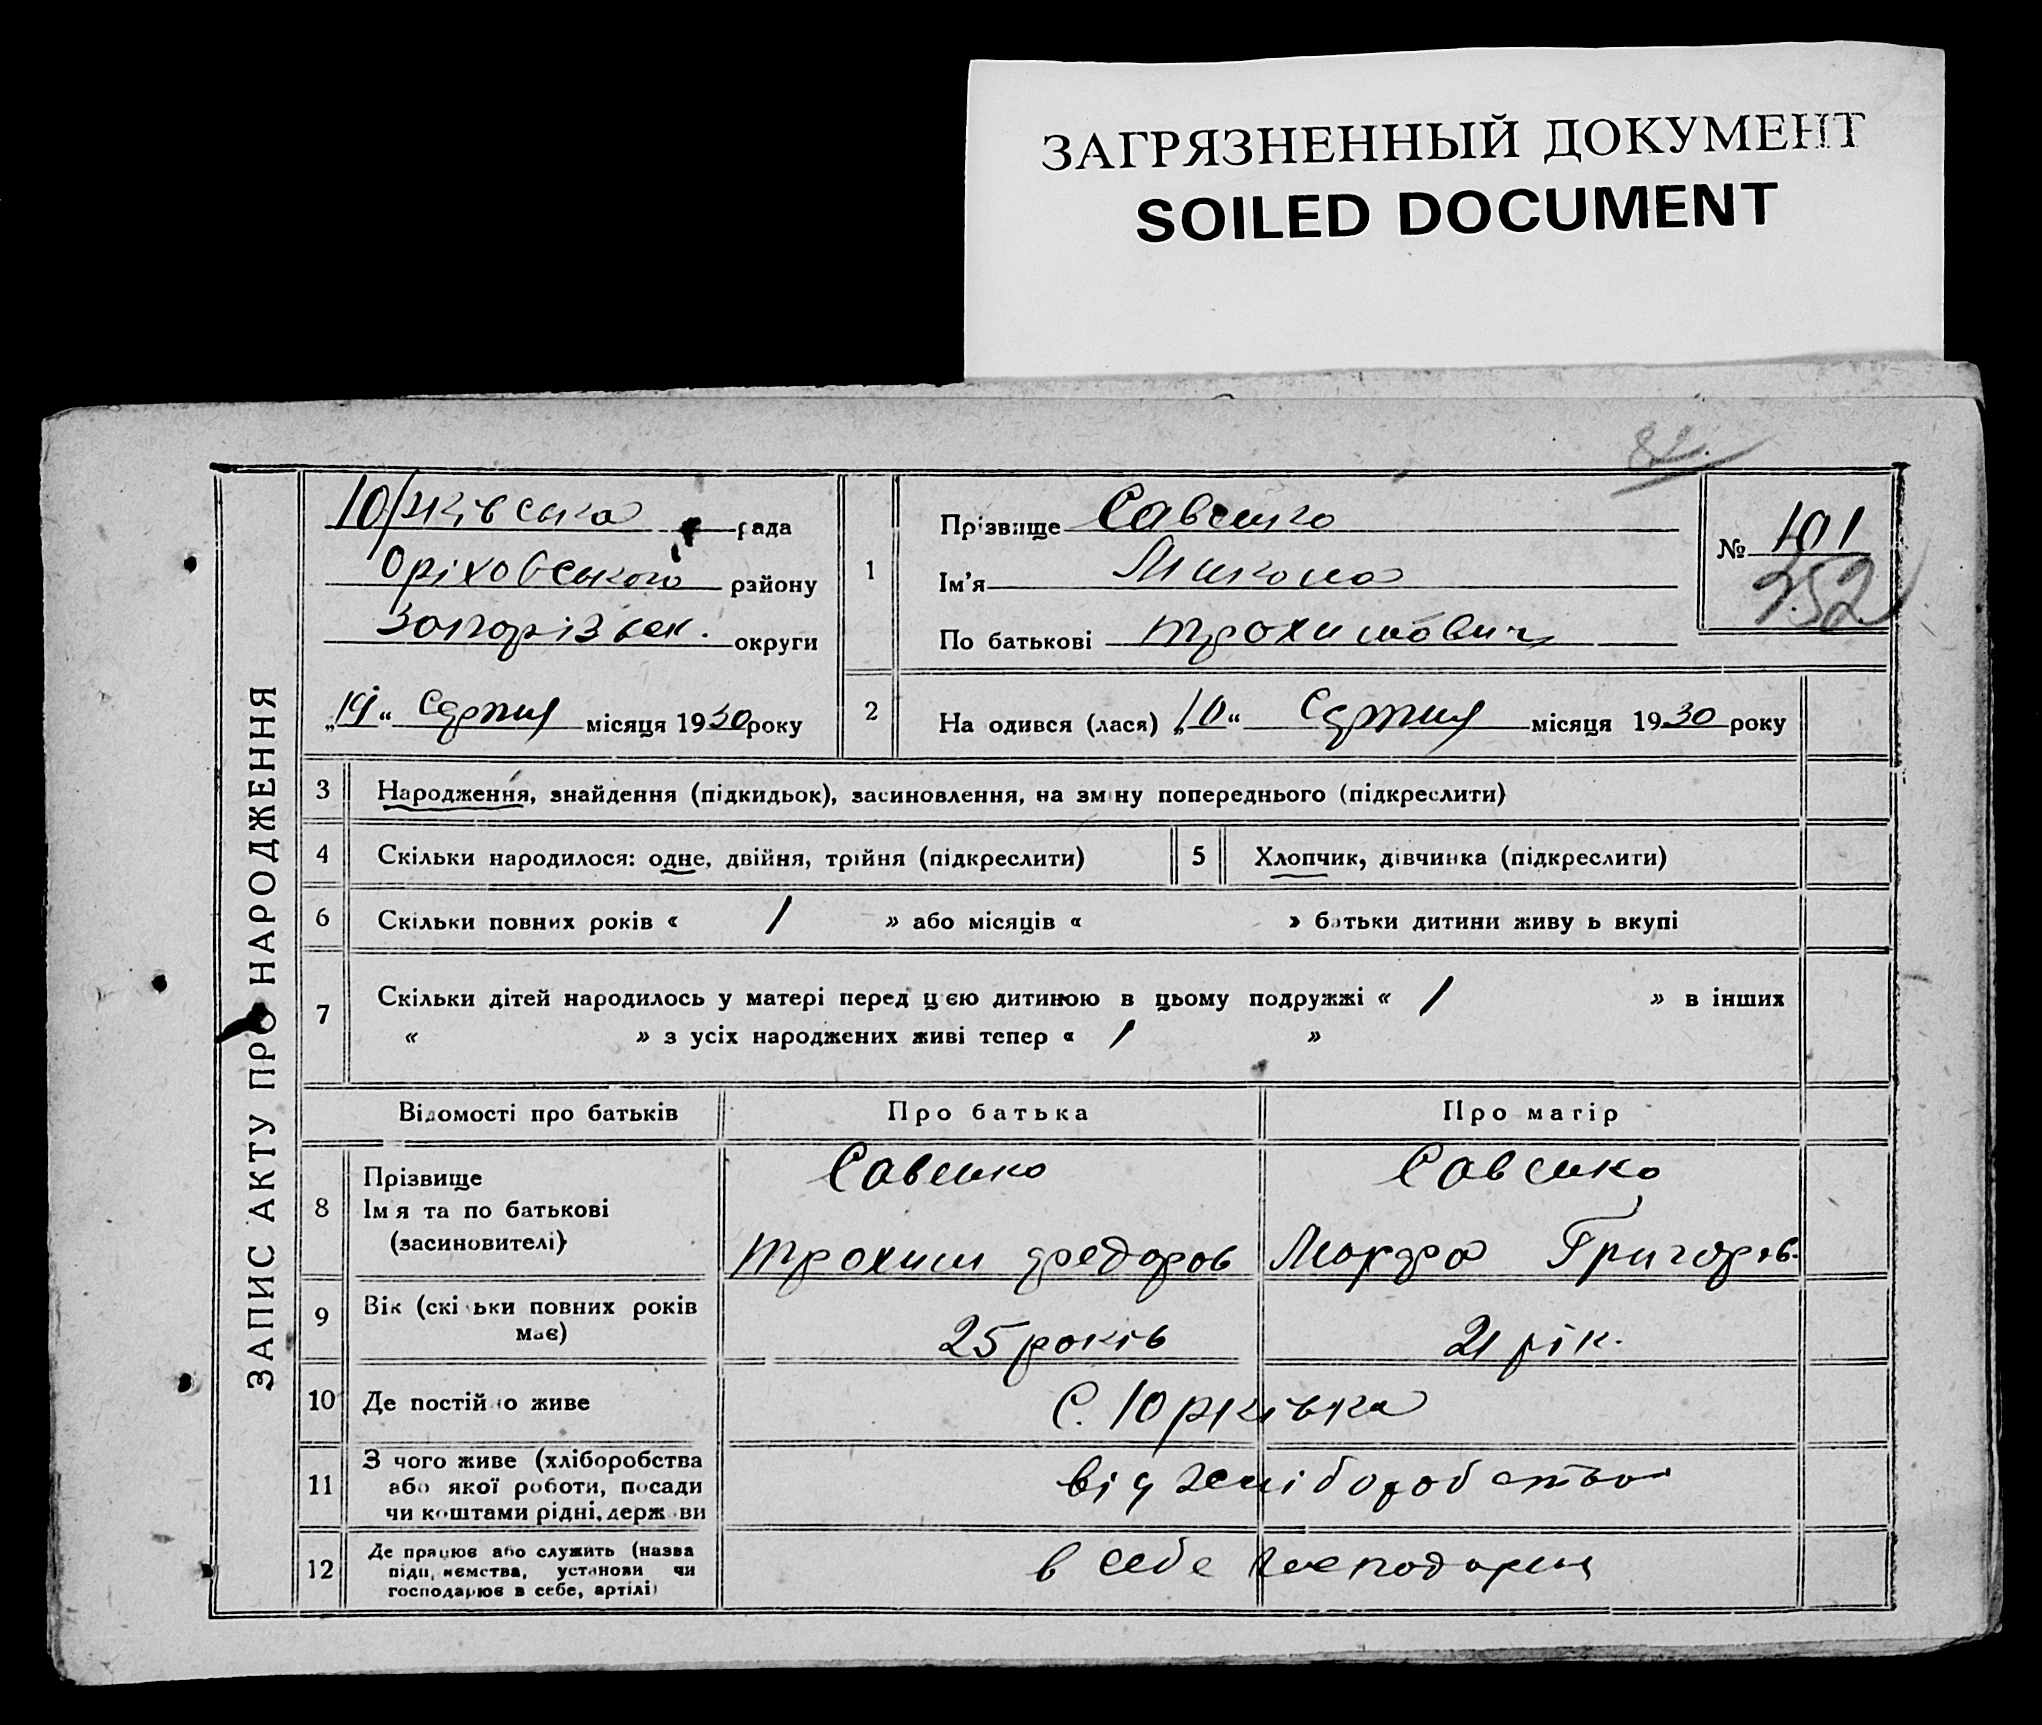 ЗАГРЯЗНЕННЫЙ ДОКУМЕНТ
SOILED DOCUMENT
82.
ЗАПИС АКТУ ПРО НАРОДЖЕННЯ
Юрківська рада
Оріховського району
Запорізьк. округи
„19“ серпня місяця 1930 року
1
Прізвище Савенко
Ім'я Микола
По батькові Трохимович
№ 101
252
2
На одився (лася) „10“ Серпня місяця 1930 року
3 Народження, знайдення (підкидьок), засиновлення, на зміну попереднього (підкреслити)
4 Скільки народилося: одне, двійня, трійня (підкреслити)
5 Хлопчик, дівчинка (підкреслити)
6 Скільки повних років « / » або місяців « » батьки дитини живу ь вкупі
7 Скільки дітей народилось у матері перед цєю дитиною в цьому подружжі « / » в інших
« » з усіх народжених живі тепер « / »
Відомості про батьків Про батька Про матір
8 Прізвище
Ім я та по батькові
(засиновителі)
Савенко Савенко
Трохим Федоров Мокра Григоров.
9 Вік (скі ьки повних років
має)
25 років 21 рік.
10 Де постій о живе С. Юрківка
11 З чого живе (хліборобства
або якої роботи, посади
чи коштами рідні, держ ви
від хліборобства
12 Де працює або служить (назва
підп, ємства, установи чи
господарює в себе, артілі)
в себе господарця